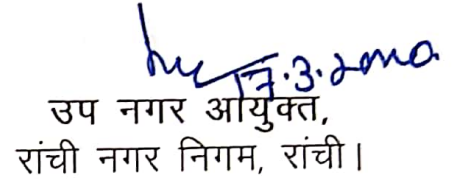 17.3.2020
उप नगर आयुक्त,
रांची नगर निगम, रांची।